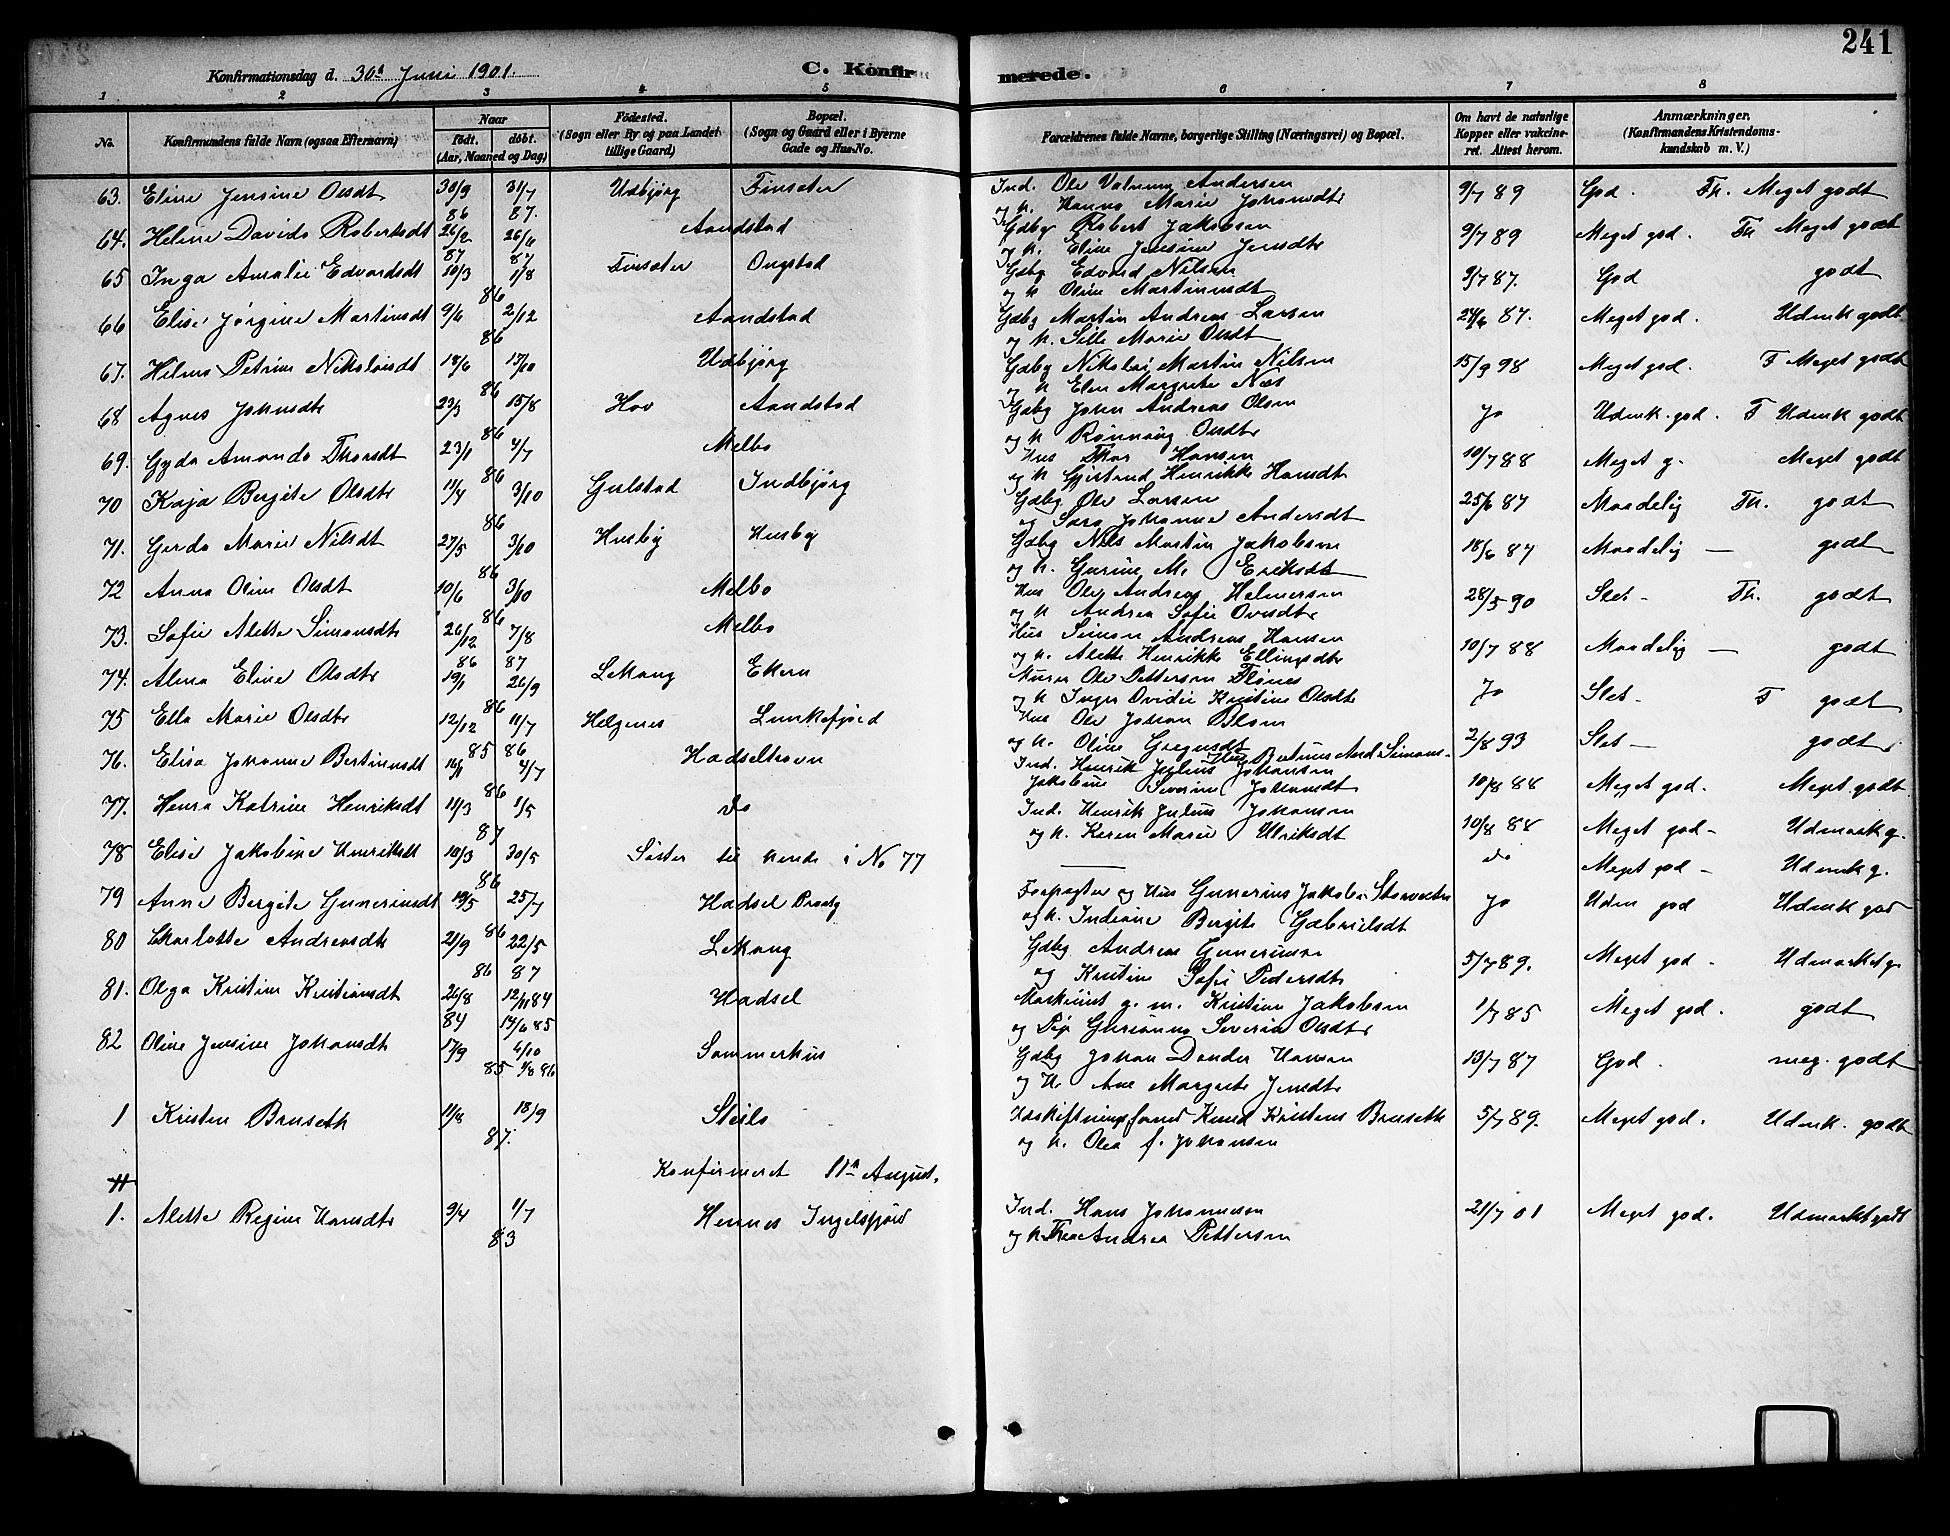 241
Konfirmationsdag d. 30d Juni 1901. C. Konfirmerede.
1 2 3 4 5 6 7 8
No. Konfirmandens fulde Navn (ogsaa Efternavn) Naar født. døbt. (Aar, Maaned og Dag) Fødested. (Sogn eller By og paa Landet tillige Gaard) Bopæl. (Sogn og Gaard eller i Byerne Gade og Hus-No. Forældrenes fulde Navne, borgerlige Stilling (Næringsvei) og Bopæl. Om havt de naturlige Kopper eller vakcineret. Attest herom. Anmærkninger. (Konfirmandens Kristendomskundskab m. V.)
63. Eline Jensine Olsdt 30/9 86 31/7 87. Udbjørg Finsæter Ind. Ole Andersen 9/7 89 God. Fh. Meget godt
og h. Hanna Marie Johansdtr
64. Helene Davida Robertsdt 26/2 87 26/6 87 Aandstad Gdbg Robert Jakobsen 9/7 89 Meget god. Fh Meget godt
og h. Eline Jensine Jensdtr
65 Inga Amalie Edvardsdt 10/3 1/8 86 Finsæter Ongstad Gdbg Edvard Nilsen 9/7 87. God godt
og h Oline Martinusdt
66 Elise Jørgine Martinsdt 9/6 2/12 86 Aandstad Gdbg Martin Andreas Larsen 24/6 87. Meget god. Udmk godt
og h. Sille Marie Olsdt
67. Hilma Petrine Nikolaisdt 18/6 13/10 86 Udbjørg Gdbg Nikolai Martin Nilsen 15/9 98 Meget god. F Meget godt
og h Elen Margrete Næs
68 Agnes Johnsdtr 23/3 15/8 86 Hov Aandstad Gdbg John Andreas Olsen Jo Udmk. god. F Udmk godt
og h Rønnaug Olsdtr
69. Gyda Amanda Thorsdt 23/1 4/7 86 Melbo Hus Thor Hansen 10/7 88 Meget g. Meget godt
og h Gjertrud Henrikke Hansdt
70 Kaja Bergite Olsdtr 11/4 3/10 86 Gulstad Indbjørg Gdbg Ole Larsen 25/6 87 Maadelig Fh. godt
og Sara Johanne Andersdt
71. Gerda Marie Nilsdt 27/5 3/10 86 Husby Husby Gdbg Nils Martin Jakobsen 18/6 87 Maadelig — godt
og h. Gurine M. Eriksdt
72 Anna Oline Olsdt 10/6 3/10 86 Melbo Hus Ole Andreas Helmersen 28/5 90 Slet - Fh. godt
og h Andrea Sofie Ovesdtr
73. Sofie Alette Simonsdtr 26/12 86 7/8 87 Melbo Hus Simon Andreas Hansen 10/7 88 Maadelig — godt
og h. Alette Henrikke Ellingsdtr
74. Alma Eline Olsdtr 19/1 26/9 86 Lekang Ekren Murer Ole Pettersen Flønes Jo Slet - F godt
og h Inger Ovidie Kristine Olsdtr
75 Ella Marie Olsdtr 12/12 85 11/7 86 Helgenes Lunkefjord Hus Ole Johan Blom 2/8 93 Slet — godt
og h. Oline Gregusdt
76. Elisa Johanne Bertinusdt 16/1 4/7 86 Hadselhavn Ind. Henrik Julius Johansen Hus Bertinus And. Simons- 10/8 88 Meget god. Meget godt
Jakobine Severine Johansdt
77. Henra Katrine Henriksdt 11/3 1/5 87 do Ind. Henrik Julius Johansen 10/8 88 Meget god - Udmærk g.
og h. Karen Marie Ulriksdt
78 Elise Jakobine Henriksdt 10/3 30/5 86 Søster til hende i No 77 — do Meget god - Udmk g.
79 Anne Bergite Guneriusdt 19/5 25/7 86 Hadsel Prstg Forpagter og Hus Gunerius Jakobs. Jo Udm god Udmk god
og h. Indiane Bergite Gabrielsdt
80 Charlotte Andreasdtr 21/9 86 22/5 87 Lekang Gdbg Andreas Gunerius 5/7 89. Meget god - Udmærket g.
og Kristine Sofie Pedersdt
81. Olga Kristine Kristiansdt 26/8 84 12/11 84 14/6 85 Hadsel Maskinist g. m. Kristian Jakobsen 1/7 85 Meget god. godt
og Pige Gurianna Severine Olsdtr
82 Oline Jensine Johansdt 17/9 85 4/10 1/8 86 Sommerhus Gdbg Johan Hansen 13/7 87 God. meg. godt
og h. Ane Margrete Jensdtr
1 Kristen Bruseth 11/8 18/9 87. Steilo Udskiftningsformd Knud Kristens Bruseth 5/7 89. Meget god. Udmk. godt
og h. Olea f. Johansen
Konfirmeret 11te August.
1. Alette Regine Hansdtr 9/4 1/7 83 Hennes Ingelsfjord Ind. Hans Johannesen 21/7 01 Meget god. Udmærket godt
og h. Thea Andrea Pettersen